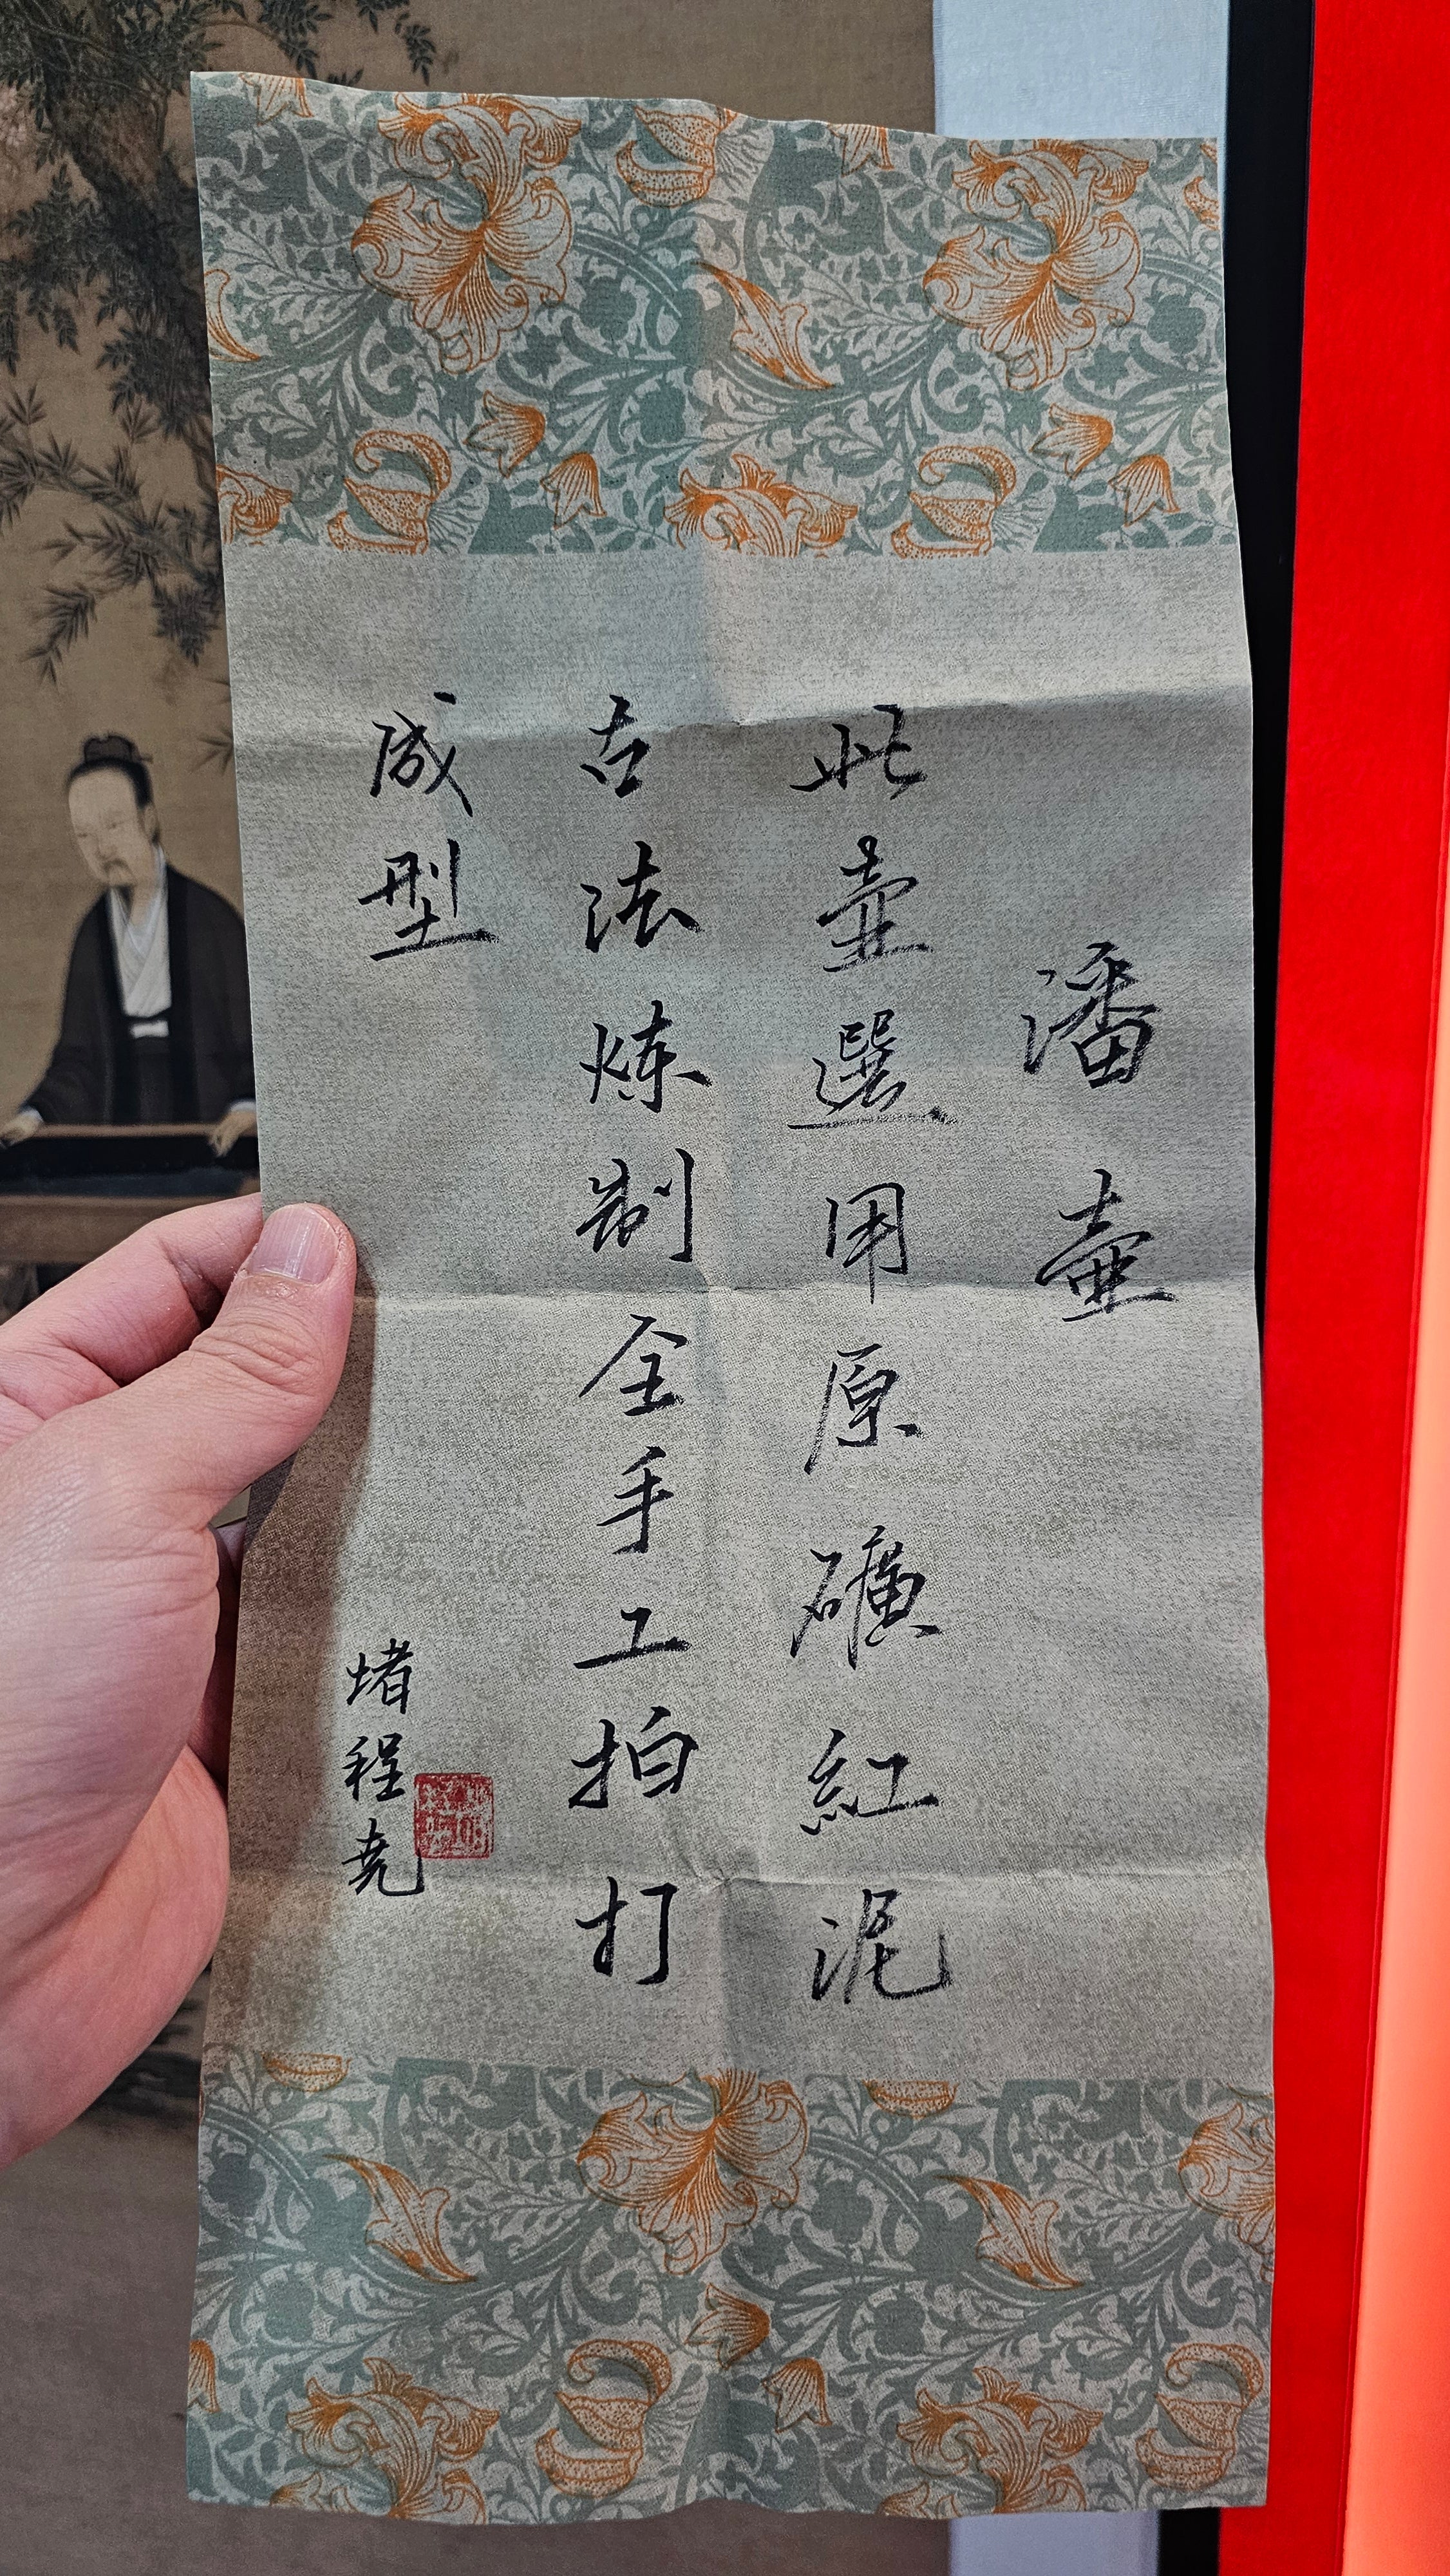 潘壺
此壺選用原礦紅泥
古法炼制全手工拍打
成型
堵程尧